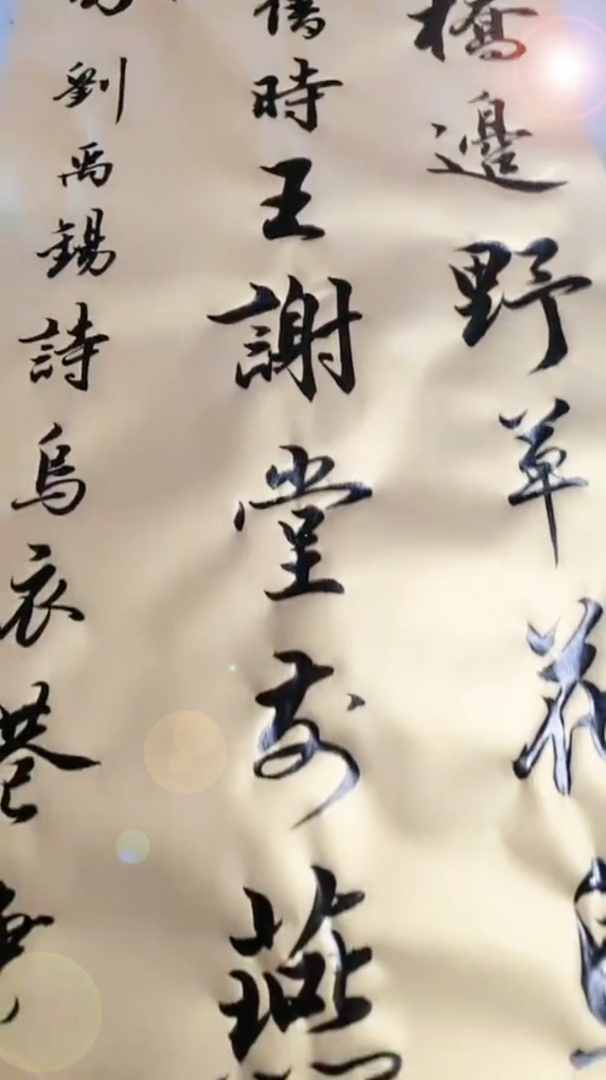 橋邊野草花
時王謝堂前燕
劉禹錫詩烏衣巷